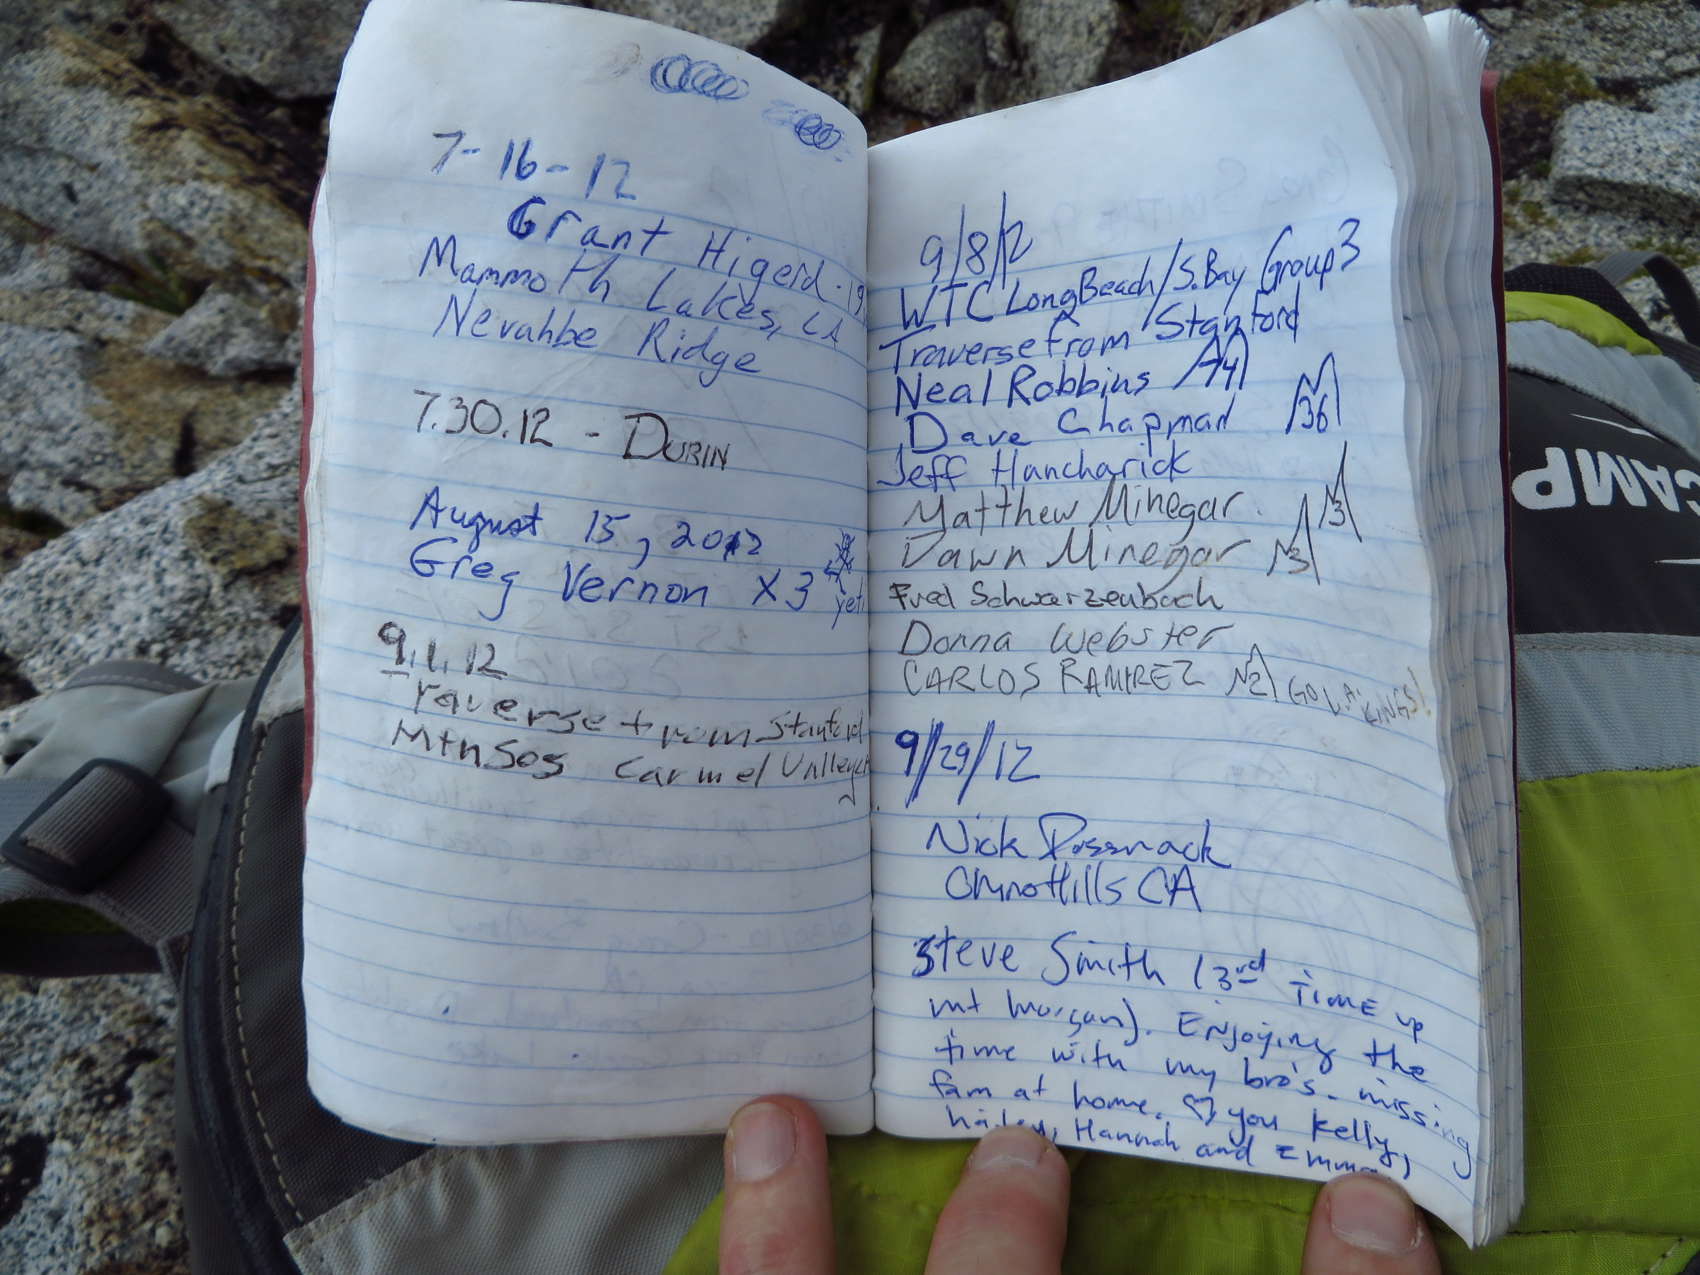 7-16-12
Grant Higerd - 19
Mammoth Lakes, CA
Nevahbe Ridge
7.30.12 - DURIN
August 15, 2012
Greg Vernon X3
yeti
9.1.12
Traverse from Stanford
Mtn Sos Carmel Valley
9/8/12
WTC Long Beach/S.Bay Group 3
Traverse from Stanford
Neal Robbins
Dave Chapman
36
Jeff Hancharick
Matthew Minegar
3
Dawn Minegar
3
Fred Schwarzenbach
Donna Webster
CARLOS RAMIREZ 2 GO L.A. KINGS!
9/29/12
Nick
Chino Hills CA
Steve Smith (3rd Time up
mt Morgan). Enjoying the
time with my bro's. missing
fam at home. ♡ you Kelly,
hailey, Hannah and Emma,
CAMP